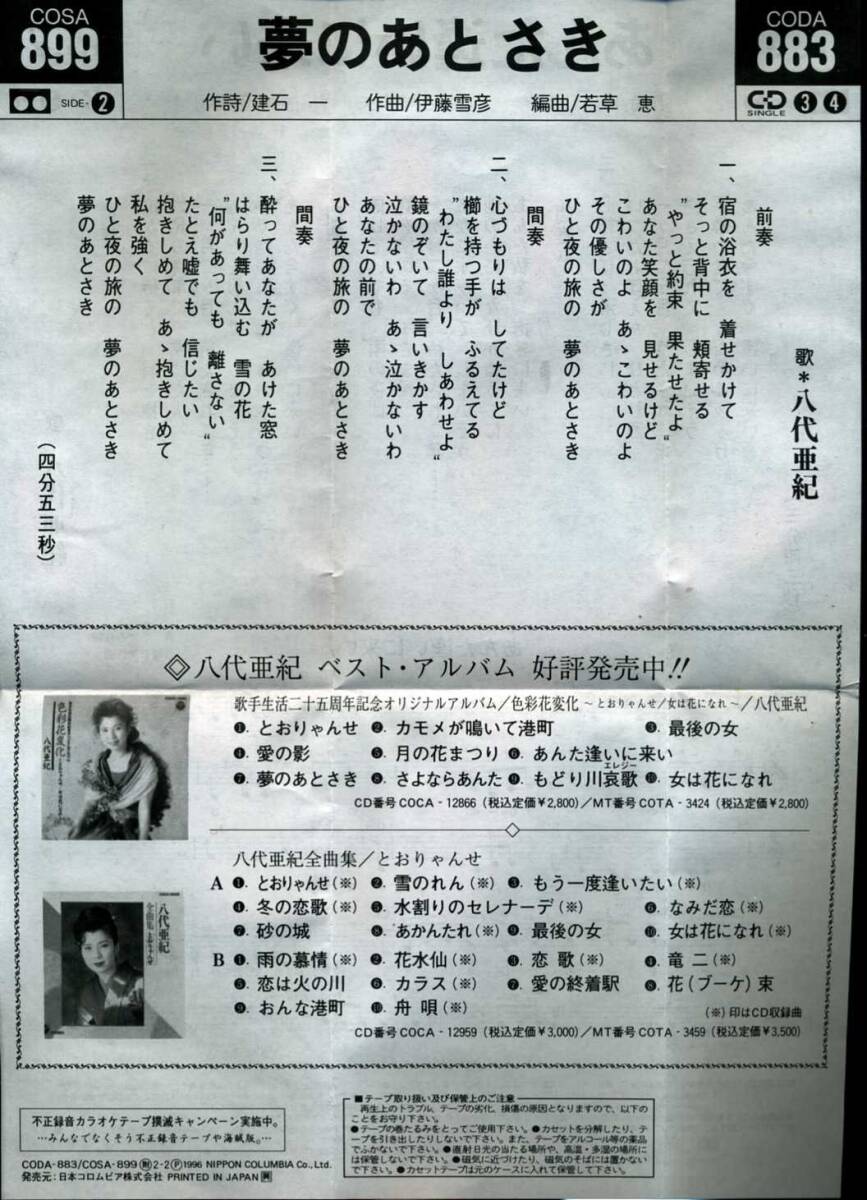 COSA
899
SIDE-2
夢のあとさき
作詩/建石 一　作曲/伊藤雪彦　編曲/若草 恵
CODA
883
CD SINGLE ❸ ❹
歌＊八代亜紀
前奏
一、宿の浴衣を　着せかけて
そっと背中に　頬寄せる
"やっと約束　果たせたよ"
あなた笑顔を　見せるけど
こわいのよ　あゝこわいのよ
その優しさが
ひと夜の旅の　夢のあとさき
間奏
二、心づもりは　してたけど
櫛を持つ手が　ふるえてる
"わたし誰より　しあわせよ"
鏡のぞいて　言いきかす
泣かないわ　あゝ泣かないわ
あなたの前で
ひと夜の旅の　夢のあとさき
間奏
三、酔ってあなたが　あけた窓
はらり舞い込む　雪の花
"何があっても　離さない"
たとえ嘘でも　信じたい
抱きしめて　あゝ抱きしめて
私を強く
ひと夜の旅の　夢のあとさき
夢のあとさき
（四分五三秒）
◇八代亜紀 ベスト・アルバム 好評発売中!!
歌手生活二十五周年記念オリジナルアルバム／色彩花変化 ～とおりゃんせ／女は花になれ～／八代亜紀
❶とおりゃんせ ❷カモメが鳴いて港町 ❸最後の女
❹愛の影 ❺月の花まつり ❻あんた逢いに来い
❼夢のあとさき ❽さよならあんた ❾もどり川哀歌（エレジー） ❿女は花になれ
CD番号COCA-12866（税込定価¥2,800）／MT番号COTA-3424（税込定価¥2,800）
色彩花変化
八代亜紀
八代亜紀全曲集／とおりゃんせ
A ❶とおりゃんせ（※） ❷雪のれん（※） ❸もう一度逢いたい（※）
❹冬の恋歌（※） ❺水割りのセレナーデ（※） ❻なみだ恋（※）
❼砂の城 ❽あかんたれ（※） ❾最後の女 ❿女は花になれ（※）
B ❶雨の慕情（※） ❷花水仙（※） ❸恋歌（※） ❹竜二（※）
❺恋は火の川 ❻カラス（※） ❼愛の終着駅 ❽花（ブーケ）束
❾おんな港町 ❿舟唄（※）
（※）印はCD収録曲
CD番号COCA-12959（税込定価¥3,000）／MT番号COTA-3459（税込定価¥3,500）
八代亜紀
全曲集
とおりゃんせ
不正録音カラオケテープ撲滅キャンペーン実施中。
…みんなでなくそう不正録音テープや海賊版。…
CODA-883/COSA-899 2-2 Ⓟ1996 NIPPON COLUMBIA Co., Ltd.
発売元：日本コロムビア株式会社 PRINTED IN JAPAN
■テープ取り扱い及び保管上のご注意
再生上のトラブル、テープの劣化、損傷の原因となりますので、以下の
ことをお守り下さい。
●テープの巻たるみをとってご使用下さい。●カセットを分解したり、テ
ープを引き出したりしないで下さい。また、テープをアルコール等の薬品
でふかないで下さい。●直射日光の当たる場所や、高温・多湿の場所に
は保管しないで下さい。●磁気に近づけたり、磁気のそばには置かない
で下さい。●カセットテープは元のケースに入れて保管して下さい。